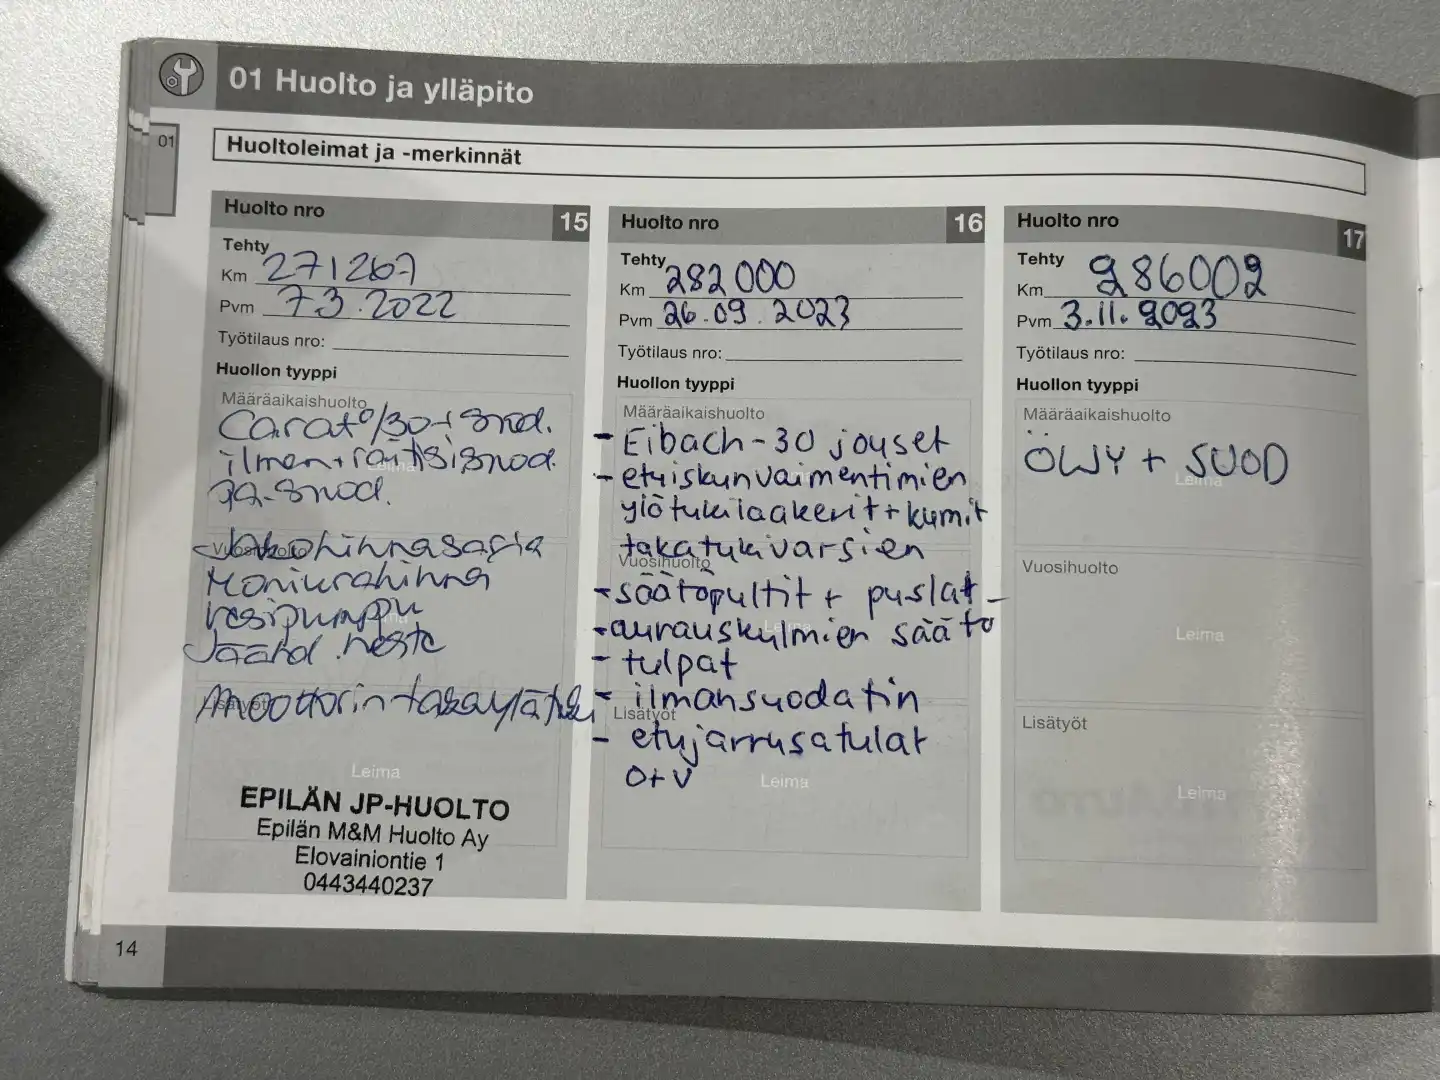 01 Huolto ja ylläpito
01
Huoltoleimat ja -merkinnät
Huolto nro 15
Tehty
Km 271267
Pvm 7.3.2022
Työtilaus nro:
Huollon tyyppi
Määräaikaishuolto
ilman+raitisisuod.
Leima
Vuosihuolto
Jakohihnasarja
Moniurahihna
vesipumppu
Leima
Jäähd.neste
Lisätyöt
Moottorin takaylätuki
Leima
EPILÄN JP-HUOLTO
Epilän M&M Huolto Ay
Elovainiontie 1
0443440237
Huolto nro 16
Tehty
Km 282000
Pvm 26.09.2023
Työtilaus nro:
Huollon tyyppi
Määräaikaishuolto
- Eibach-30 jouset
- etuiskunvaimentimien
ylötukilaakerit+kumit
takatukivarsien
Vuosihuolto
- säätöpultit + puslat
- aurauskulmien säätö
Leima
- tulpat
- ilmansuodatin
Lisätyöt
- etujarrusatulat
O+V
Leima
Huolto nro 17
Tehty
Km 286002
Pvm 3.11.2023
Työtilaus nro:
Huollon tyyppi
Määräaikaishuolto
ÖLJY + SUOD
Leima
Vuosihuolto
Leima
Lisätyöt
Leima
14